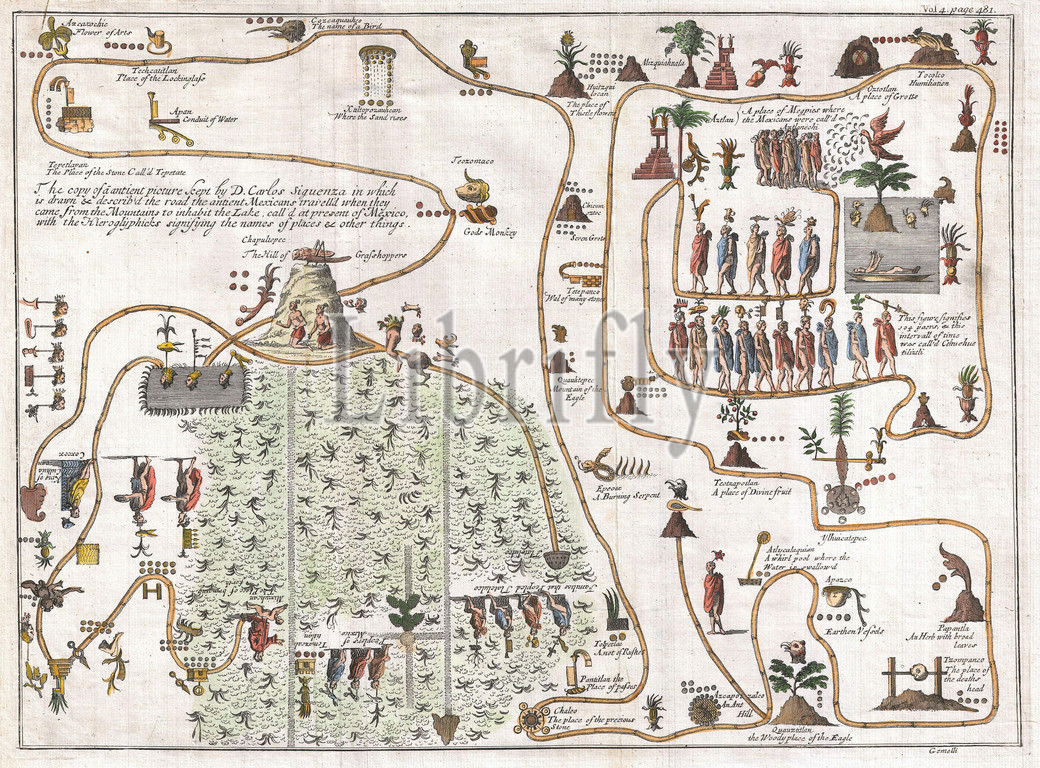 Vol 4. page 481.
Axcaxochic
Flower of Arts
Cozcaquauhco
The name of a Bird
Techcatitlan
Place of the Lockinglass
Apan
Conduit of Water
Xaltepozauhcan
Where the Sand rises
Tepetlapan
The Place of the Stone Call'd Tepetate
Teozomaco
Gods Monkey
The copy of a antient picture kept by D. Carlos Siguenza in which
is drawn & describ'd the road the antient Mexicans travell'd when they
came from the Mountains to inhabit the Lake, call'd at present of Mexico,
with the Hieroglyphicks signifying the names of places & other things.
Chapultepec
The Hill of Grasshoppers
Huitzqui
locan
The place of
Thistle flowers
Mizquiahuala
Oztotlan
A place of Grotts
Tocolco
Humiliation
Aztlan
A place of Megpies where
the Mexicans were call'd
Aztlanechi
Chicom
oztoc
Seven Grots
Tetepanco
Wal of many stones
Quauhtepec
Mountain of the
Eagle
This figure signifies
104 years, & this
intervall of time
was call'd Cehuehue
tilizli
Teotzapotlan
A place of Divine fruit
Epcoac
A Burning Serpent
Ylhuicatepec
Atlycalaquian
A whirl pool where the
Water is swallow'd
Apazco
Earthen Vessels
Papantla
An Herb with broad
leaves
Tzompanco
The place of
the deaths
head
Azcapotzalco
An Ant
Hill
Quauxtitlan
the Woody place of the Eagle
Tolpetlac
A not of Rushes
Pantitlan the
Place of palms
Chalco
The place of the precious
Stone
Cocon
King of
Culhua
Mexican
People
Families that Peopled Tlatelulco
Peoplers of
Mexico
Gemelli
Librifly